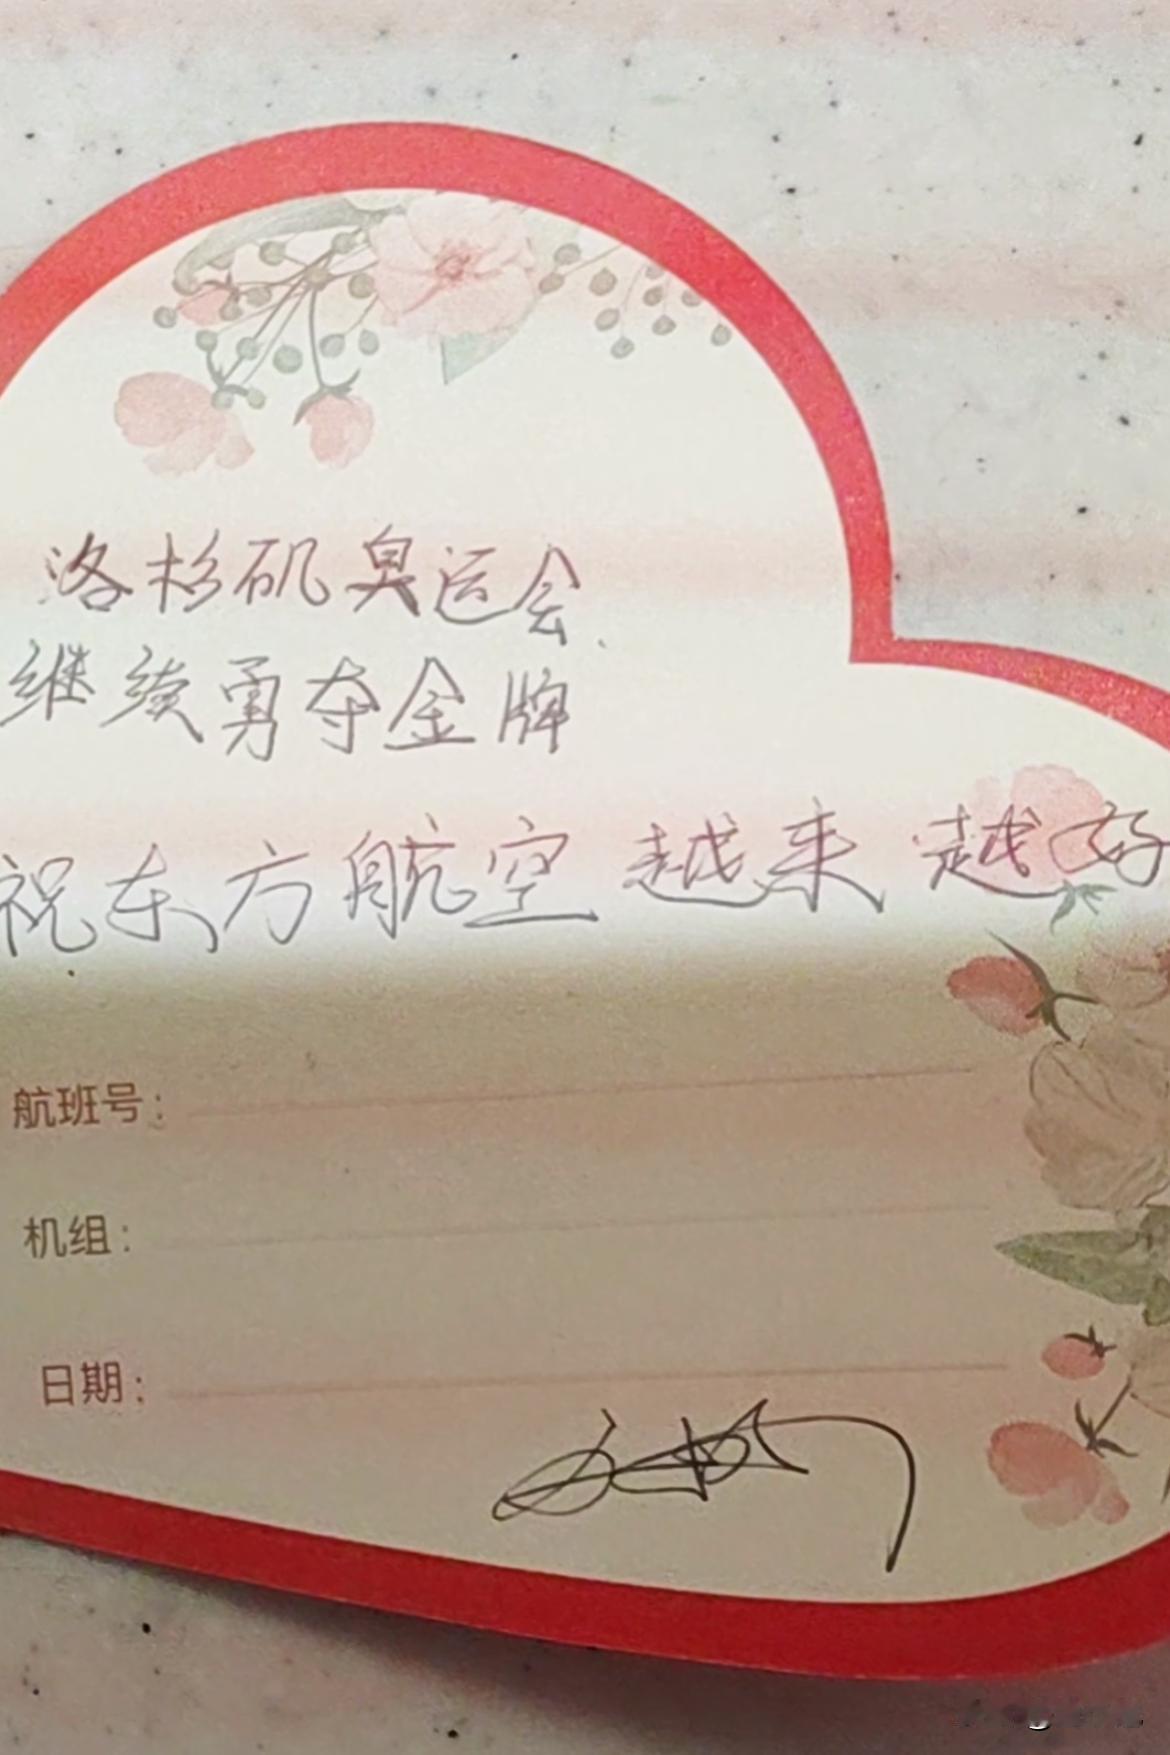 洛杉矶奥运会
继续勇夺金牌
祝东方航空越来越好
航班号：
机组：
日期：